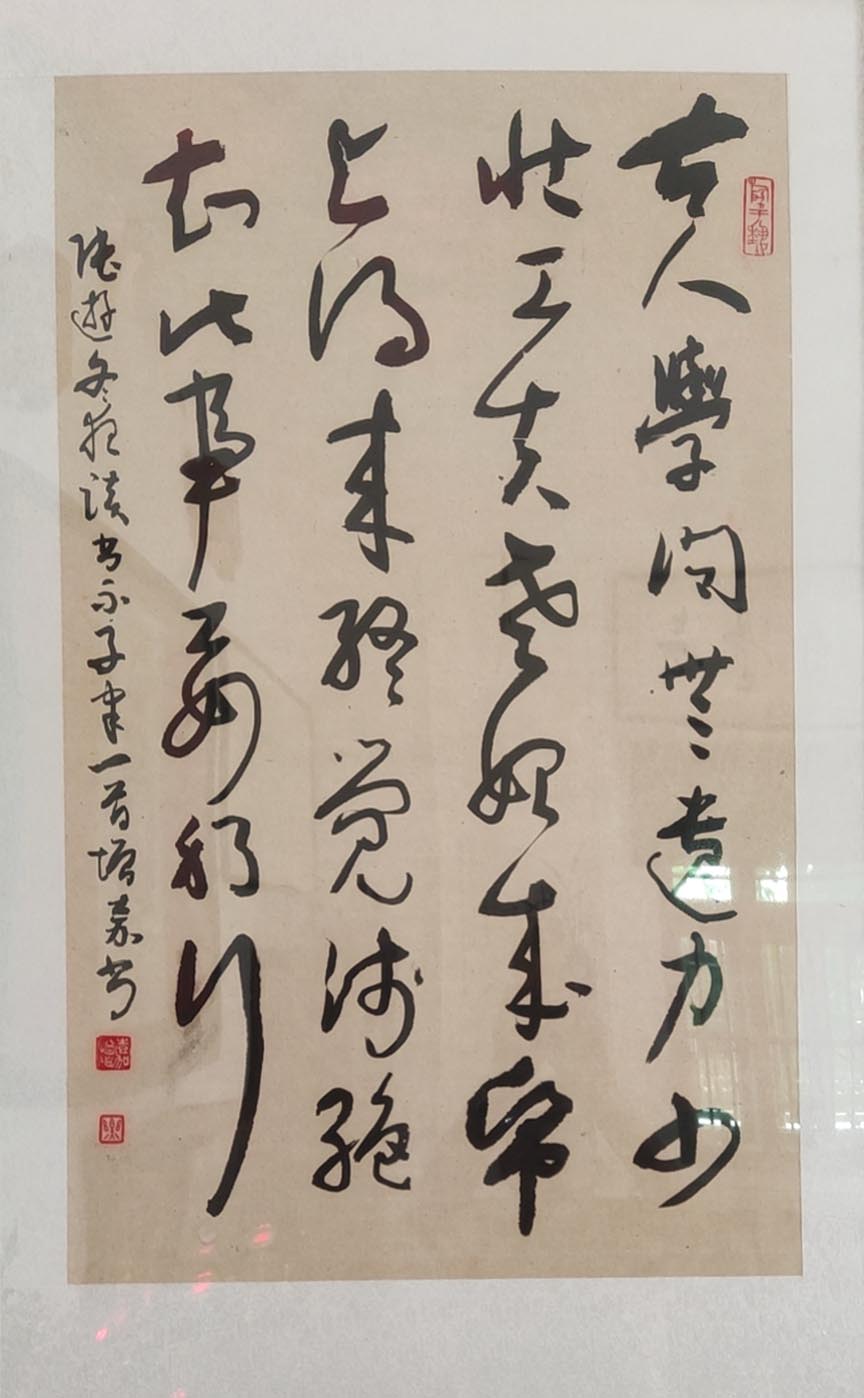 古人學問無遺力少
壯工夫老始成帋
上得来終覺淺絕
知此事要躬行
陸遊冬夜讀書示子聿一首增嘉書